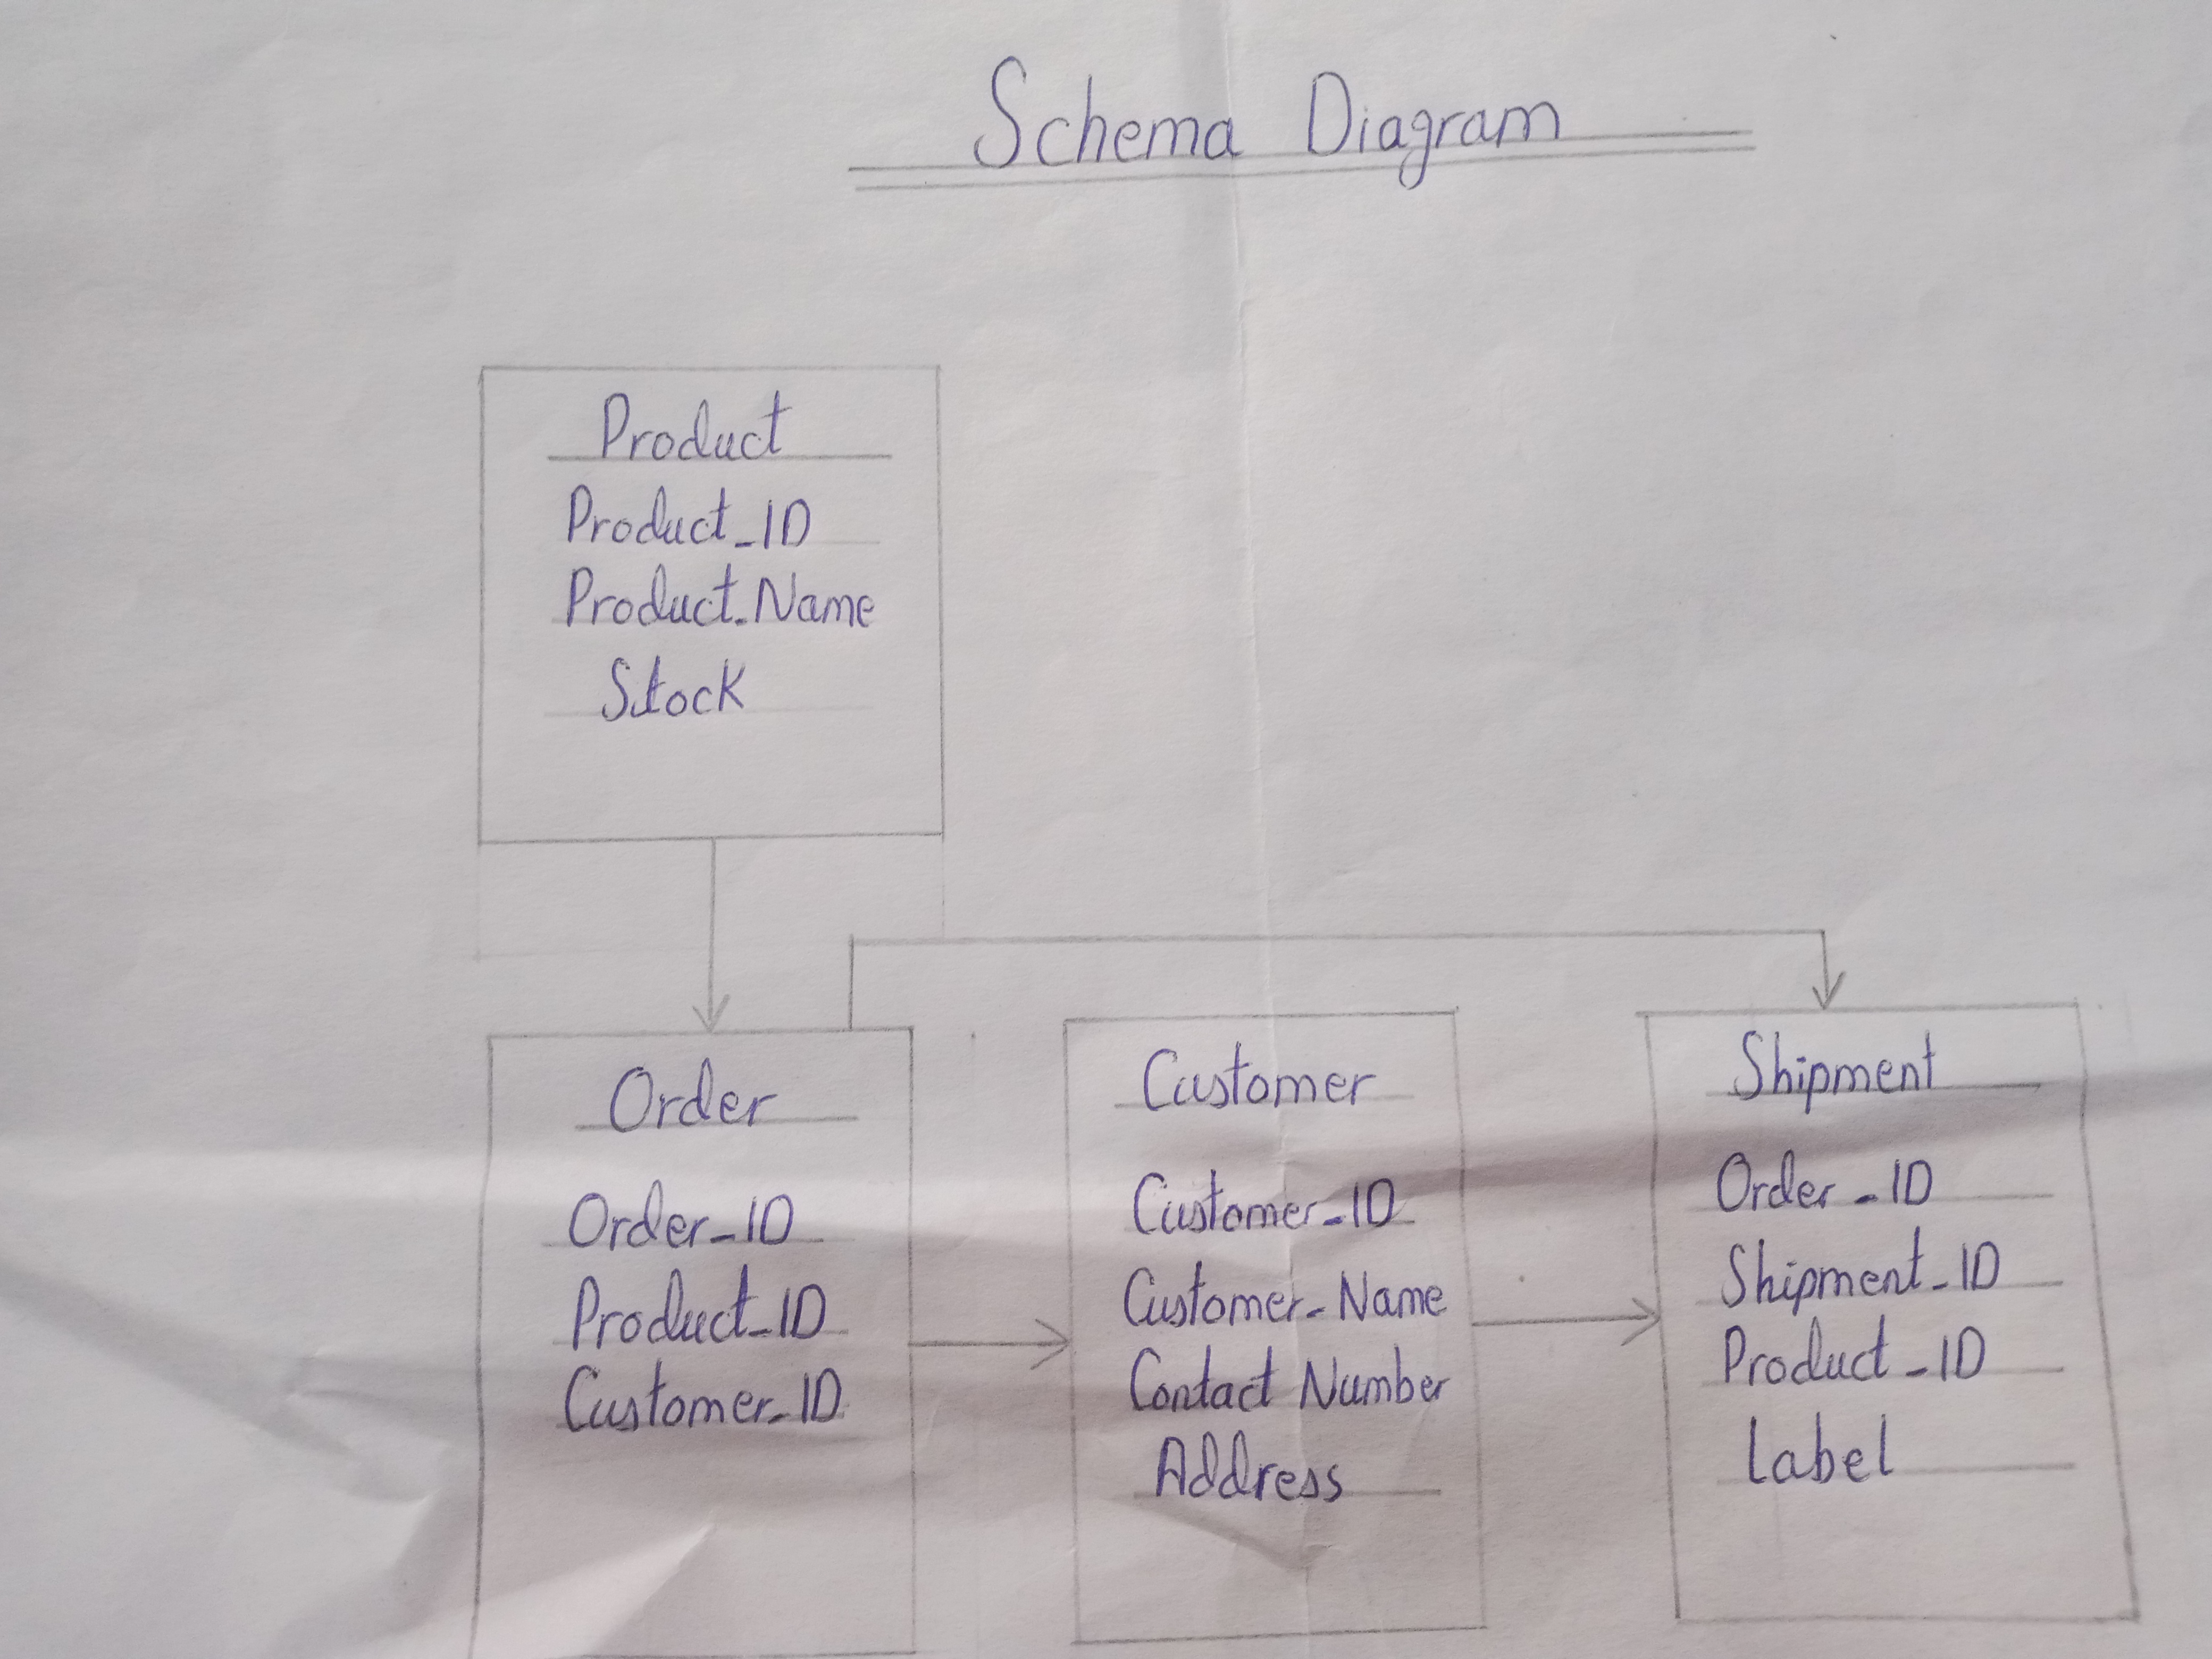 Schema Diagram
Product
Product_ID
Product_Name
Stock
Order
Order_ID
Product_ID
Customer_ID
Customer
Customer_ID
Customer_Name
Contact Number
Address
Shipment
Order_ID
Shipment_ID
Product_ID
Label